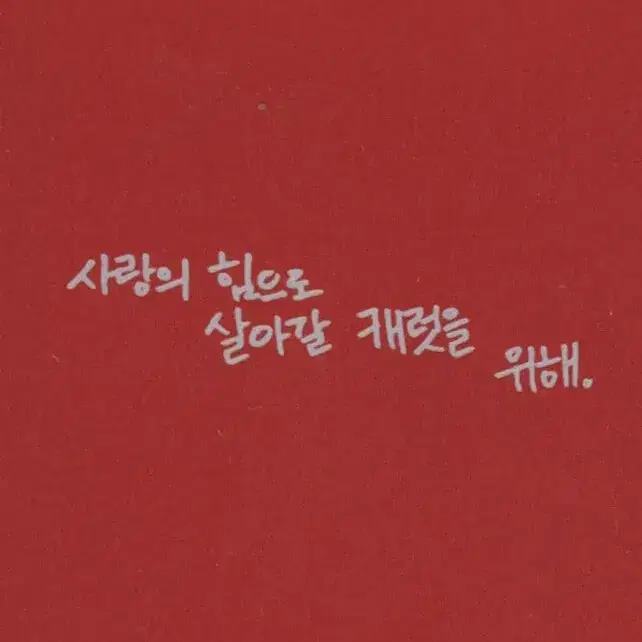 사랑의 힘으로
살아갈 캐럿을
위해.